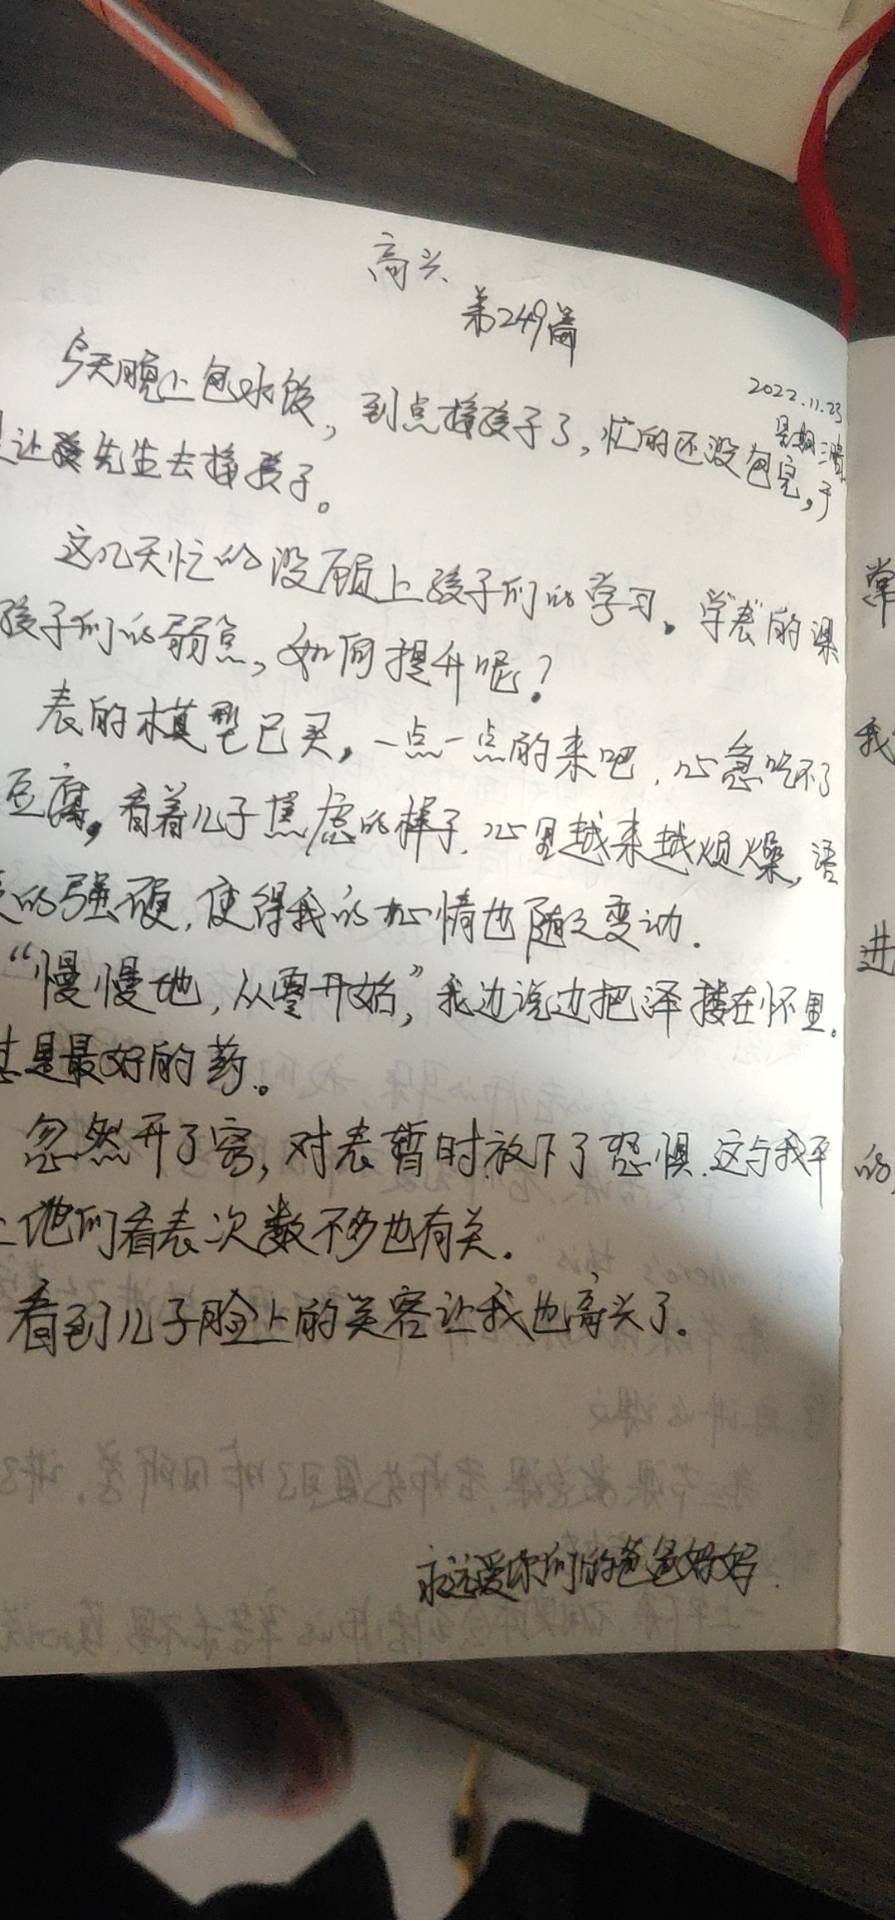 高兴
第249篇
2022.11.23
星期三
今天晚上包水饺，到点接孩子了，忙的还没包完，于
是让先生去接孩子。
这几天忙的没顾上孩子们的学习。学"表"的课
孩子们的弱点，如何提升呢？
表的模型已买，一点一点的来吧，心急吃不了
豆腐，看着儿子焦虑的样子，心里越来越烦燥，语
的强硬，使得我的心情也随之变动.
"慢慢地，从零开始"，我边说边把泽搂在怀里。
是最好的药。
忽然开了窍，对表暂时放下了恐惧.这与我平
他们看表次数不多也有关.
看到儿子脸上的笑容让我也高兴了.
永远爱你们的爸爸妈妈.
常
我
进
的